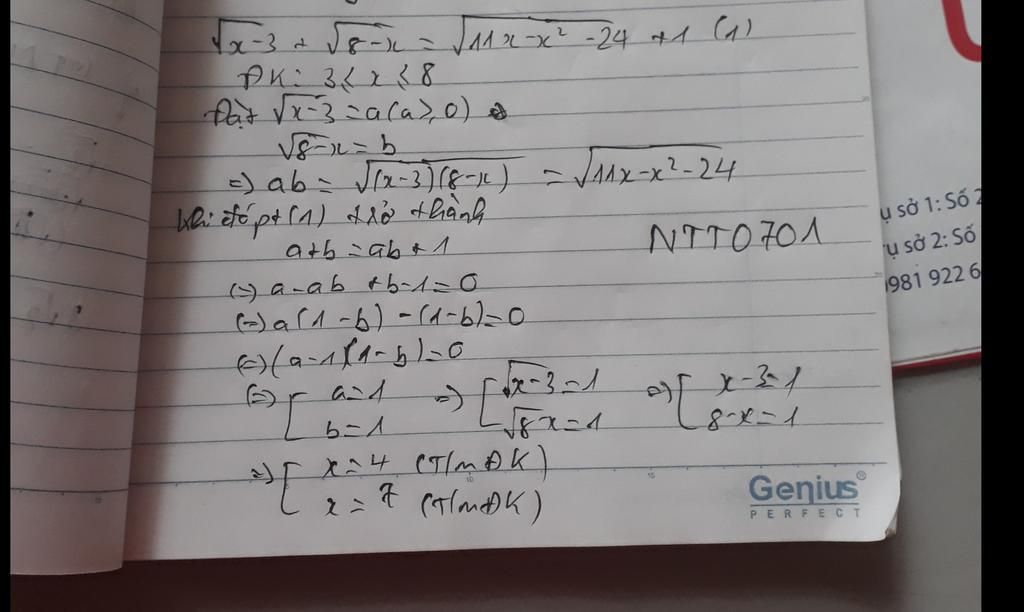 √x-3 + √8-x = √11x-x²-24 +1 (1)
ĐK: 3≤x≤8
Đặt √x-3 = a (a≥0)
√8-x = b
=> ab = √(x-3)(8-x) = √11x-x²-24
Khi đó pt (1) trở thành
a+b = ab+1
NTT0701
(=) a-ab +b-1=0
(=) a(1-b) -(1-b)=0
(=) (a-1)(1-b)=0
(=) [ a=1 => [ √x-3=1 => [ x-3=1
b=1 √8-x=1 8-x=1
=> [ x=4 (T/mĐK)
x=7 (T/mĐK)
ụ sở 1: Số 2
ụ sở 2: Số
0981 922 6
Genius®
PERFECT